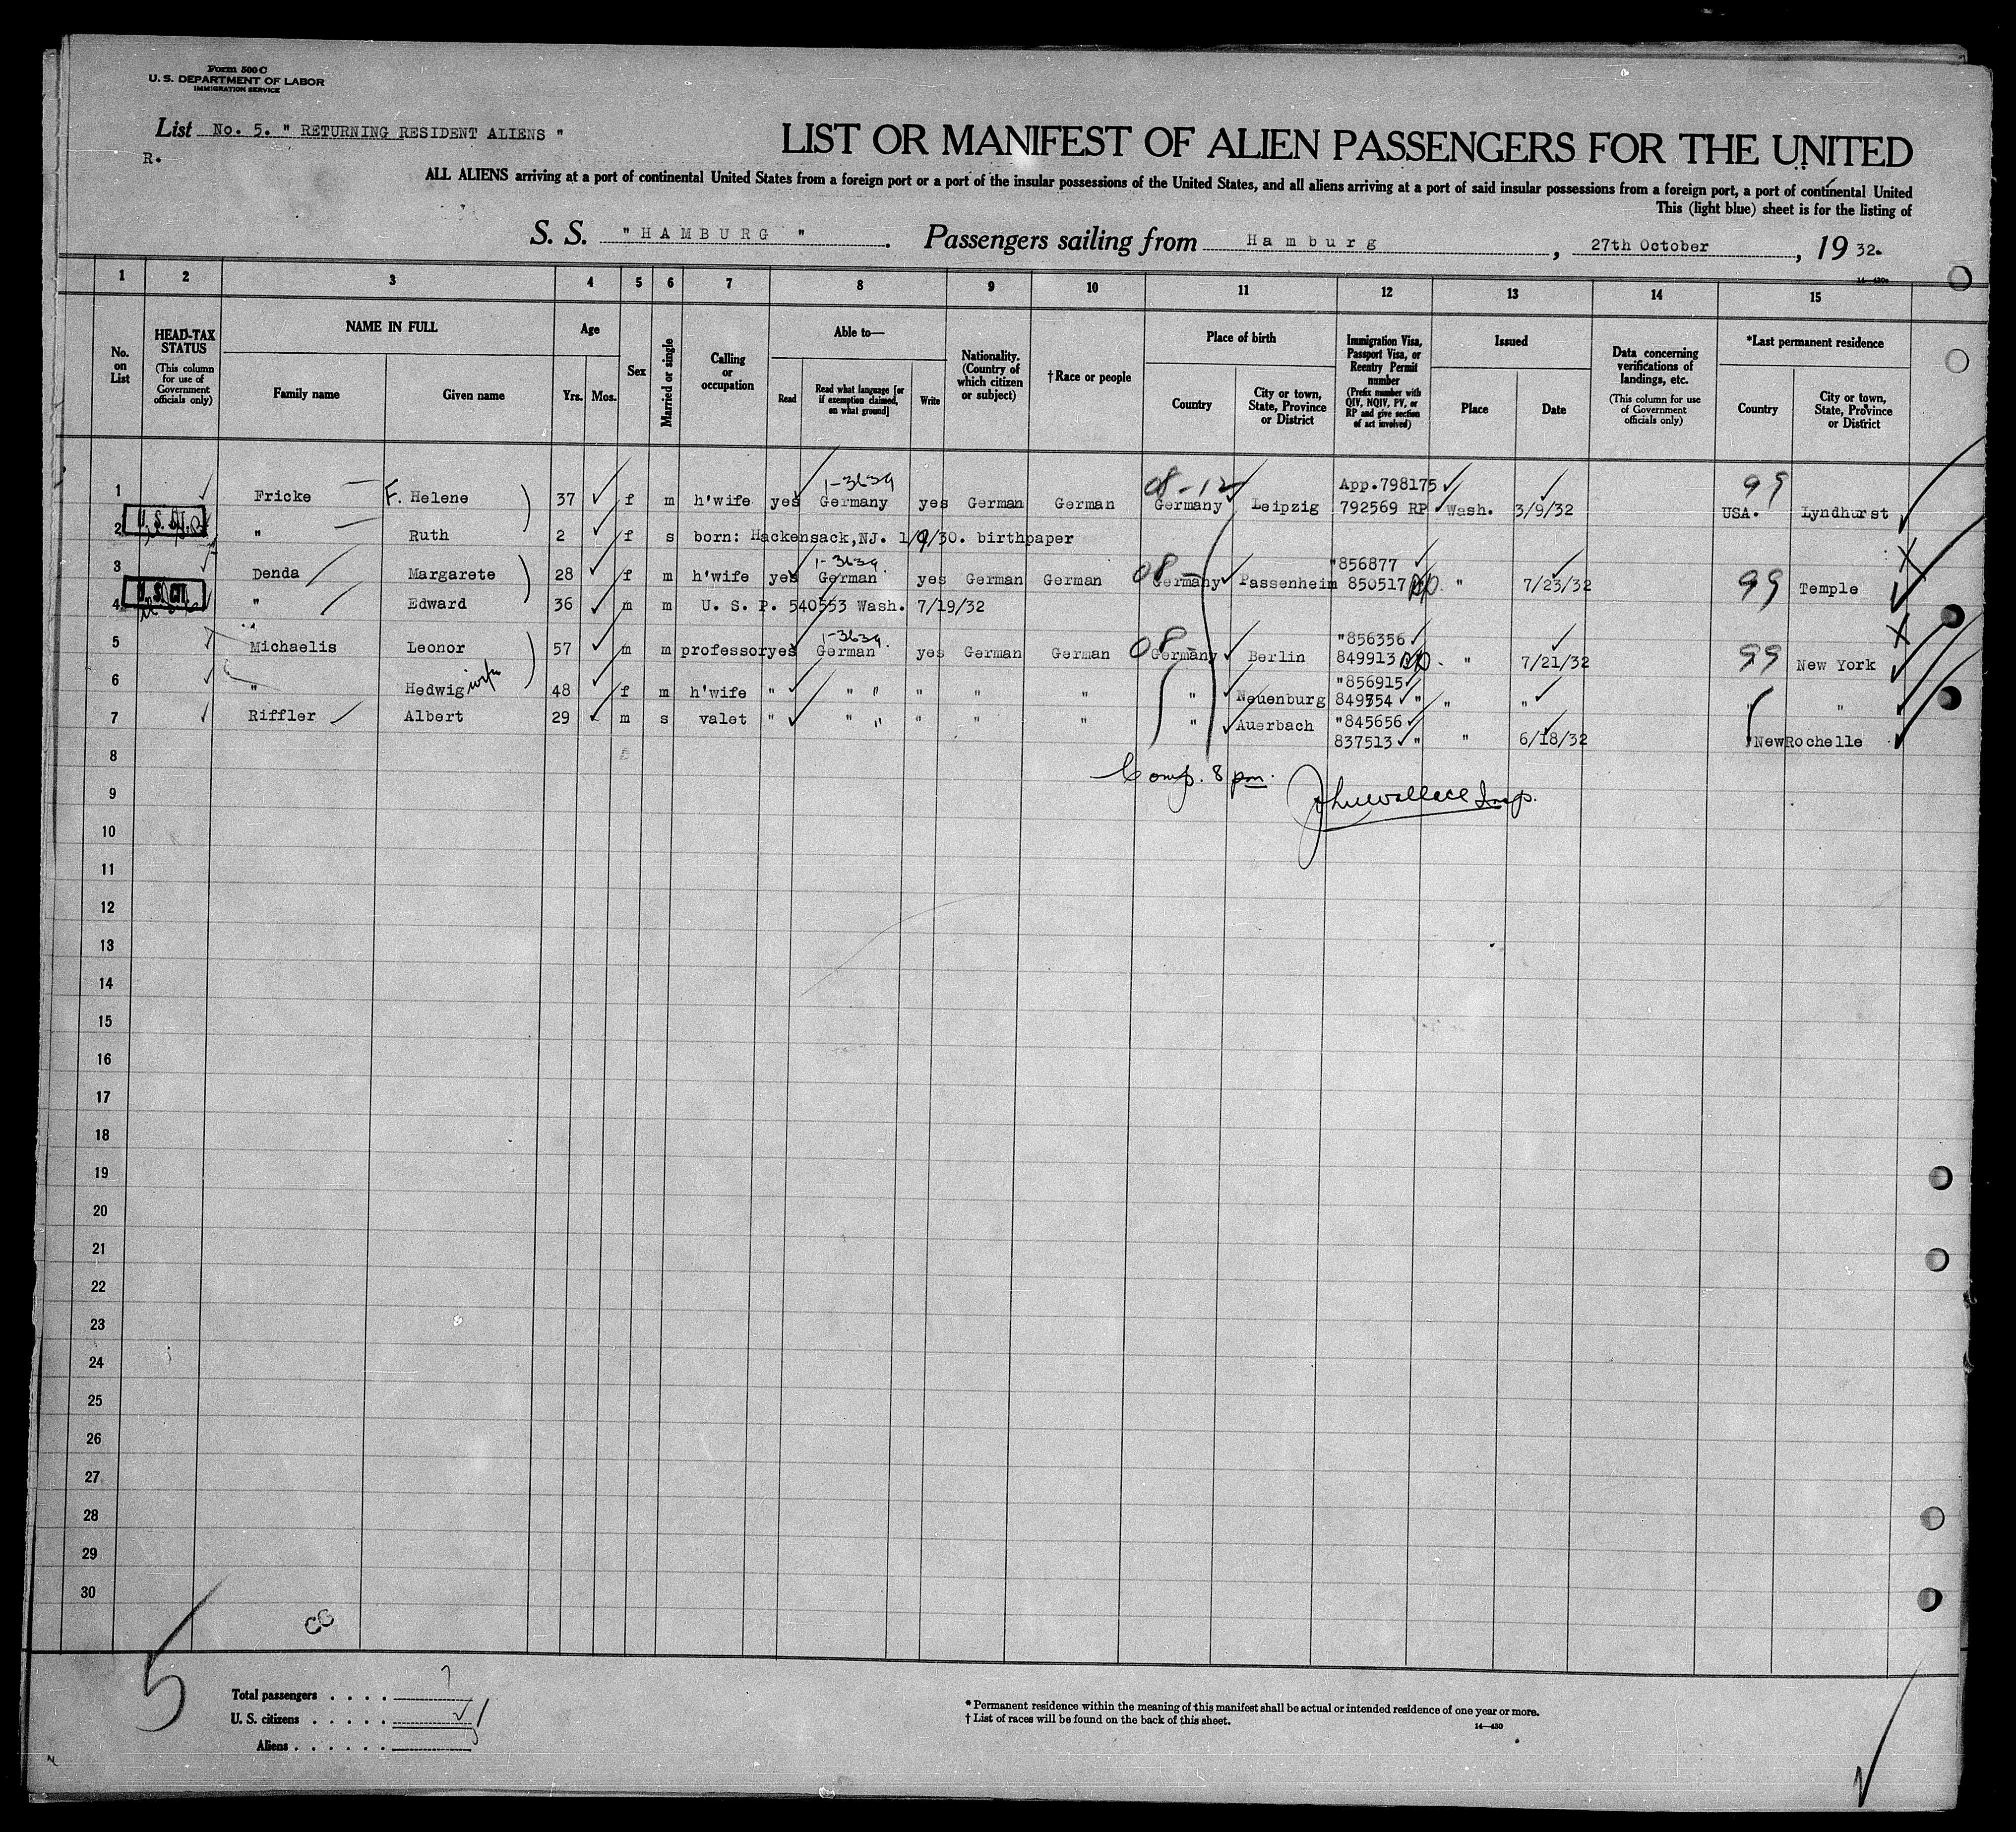 Form 500 C
U. S. DEPARTMENT OF LABOR
IMMIGRATION SERVICE
List No. 5. " RETURNING RESIDENT ALIENS "
R.
LIST OR MANIFEST OF ALIEN PASSENGERS FOR THE UNITED
ALL ALIENS arriving at a port of continental United States from a foreign port or a port of the insular possessions of the United States, and all aliens arriving at a port of said insular possessions from a foreign port, a port of continental United
This (light blue) sheet is for the listing of
S. S. " H A M B U R G " . Passengers sailing from H a m b u r g , 27th October , 19 32.
14—430a
1 2 3 4 5 6 7 8 9 10 11 12 13 14 15
No. on List
HEAD-TAX STATUS
(This column for use of Government officials only)
NAME IN FULL
Family name
Given name
Age
Yrs. Mos.
Sex
Married or single
Calling or occupation
Able to—
Read
Read what language [or if exemption claimed, on what ground]
Write
Nationality. (Country of which citizen or subject)
† Race or people
Place of birth
Country
City or town, State, Province or District
Immigration Visa, Passport Visa, or Reentry Permit number
(Prefix number with QIV, NQIV, PV, or RP and give section of act involved)
Issued
Place
Date
Data concerning verifications of landings, etc.
(This column for use of Government officials only)
*Last permanent residence
Country
City or town, State, Province or District
1-3639 08-12 App.798175 99
1 Fricke F. Helene 37 f m h'wife yes Germany yes German German Germany Leipzig 792569 RP Wash. 3/9/32 USA. Lyndhurst
2 " Ruth 2 f s born: Hackensack,NJ. 1/9/30. birthpaper
1-3639 "856877
3 Denda Margarete 28 f m h'wife yes German yes German German 08- Germany Passenheim 850517 RP " 7/23/32 99 Temple
U. S. CIT.
4 " Edward 36 m m U. S. P. 540553 Wash. 7/19/32
1-3639 "856356
5 Michaelis Leonor 57 m m professor yes German yes German German 08- Germany Berlin 849913 RP. " 7/21/32 99 New York
"856915
6 " Hedwig wife 48 f m h'wife " " " " " " " Neuenburg 849754 " " " " "
7 Riffler Albert 29 m s valet " " " " " " " Auerbach "845656
837513 " " 6/18/32 " NewRochelle
8
Comp. 8 pm. John Wallace Insp.
9
10
11
12
13
14
15
16
17
18
19
20
21
22
23
24
25
26
27
28
29
30
5
CG
Total passengers . . . . 7
U. S. citizens . . . . .
Aliens . . . . . .
* Permanent residence within the meaning of this manifest shall be actual or intended residence of one year or more.
† List of races will be found on the back of this sheet.
14—430